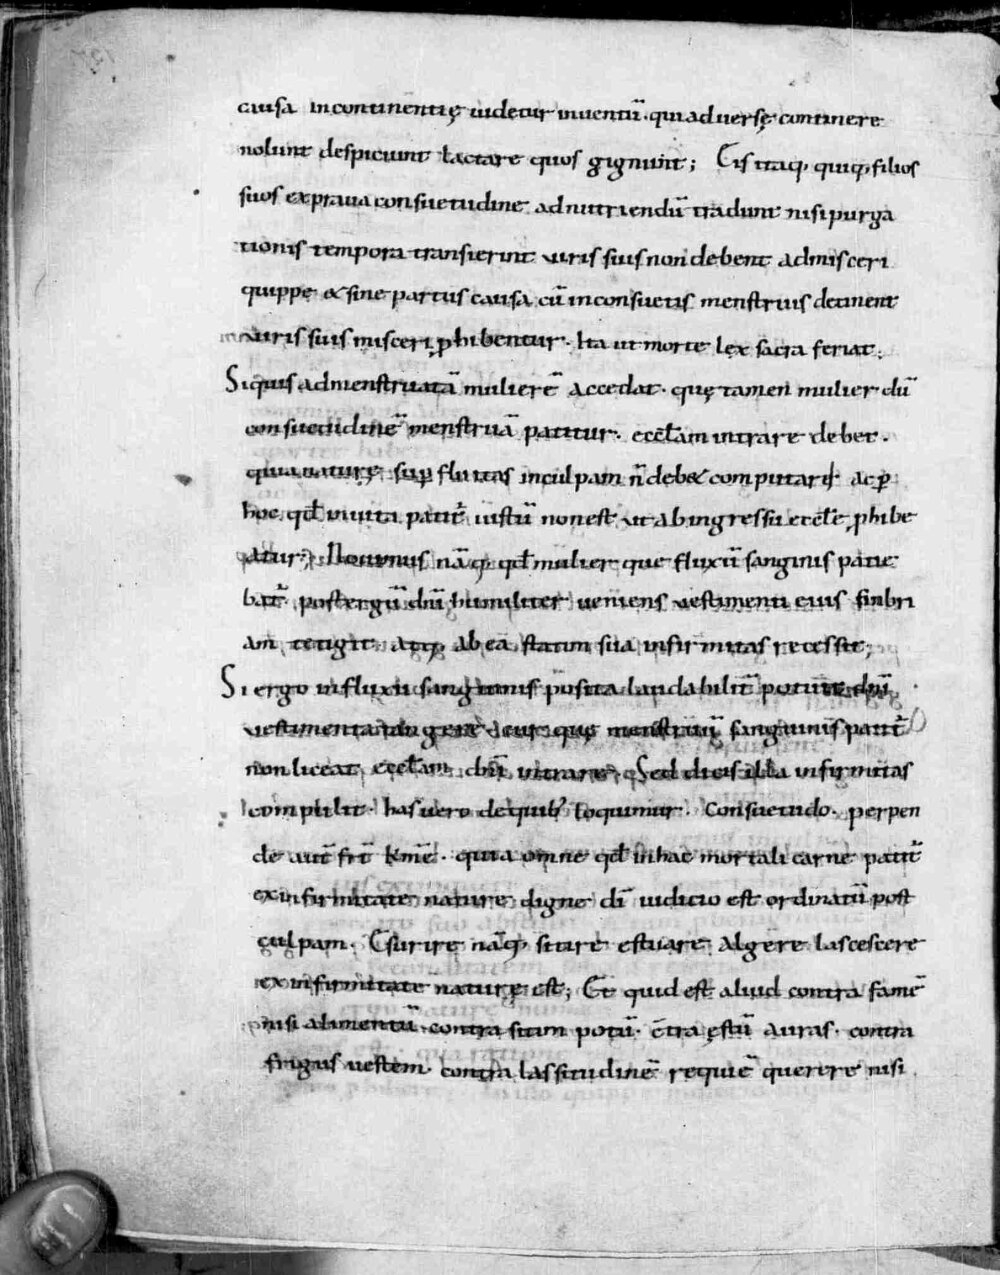 causa incontinentię uidetur inuentū. qui ad uersę continere
nolunt despiciunt lactare quos gignunt; Eis itaq; quiq; filios
suos ex praua consuetudine ad nutriendū tradunt nisi purga
tionis tempora transierint uiris suis non debent admisceri
quippe & sine partus causa cū in consuetis menstruis detinent
uiris suis misceri ꝓhibentur. Ita ut morte lex sacra feriat;
Siquis ad menstruatā mulierē accedat. quę tamen mulier dū
consuetudinē menstruā patitur. eccłam intrare debet.
quia naturę suꝑfluitas in culpam n̄ deb& computari; ac ꝑ
hoc qđ inuita patit᷑ iustū non est ut ab ingressu eccłe ꝓhibe
atur; Nouimus nāq; qđ mulier que fluxū sanginis patie
bat᷑ post ergū dn̄i humiliter ueniens uestimenti eius finbri
am tetigit atq; ab ea statim sua infirmitas recessit;
Si ergo in fluxu sanguinis posita laudabilit᷑ potuit dn̄i
uestimenta tangere cur que menstruū sanguinis patit᷑
non liceat eccłam dn̄i intrare; Sed dicis illa infirmitas
compulit. has uero de quib; loquimur. Consuetudo. perpen
de aut̄ frt̄ kmē. quia omne qđ in hac mortali carne patit᷑
ex infirmitate nature digne dī iudicio est ordinatū post
culpam. Esurire nāq; sitire estuare algere lascescere
ex infirmitate naturę est; Et quid est aliud contra famē
nisi alimentū. contra sitim potū. c̄tra ęstū auras. contra
frigus uestem. contra lassitudinē requiē querere nisi